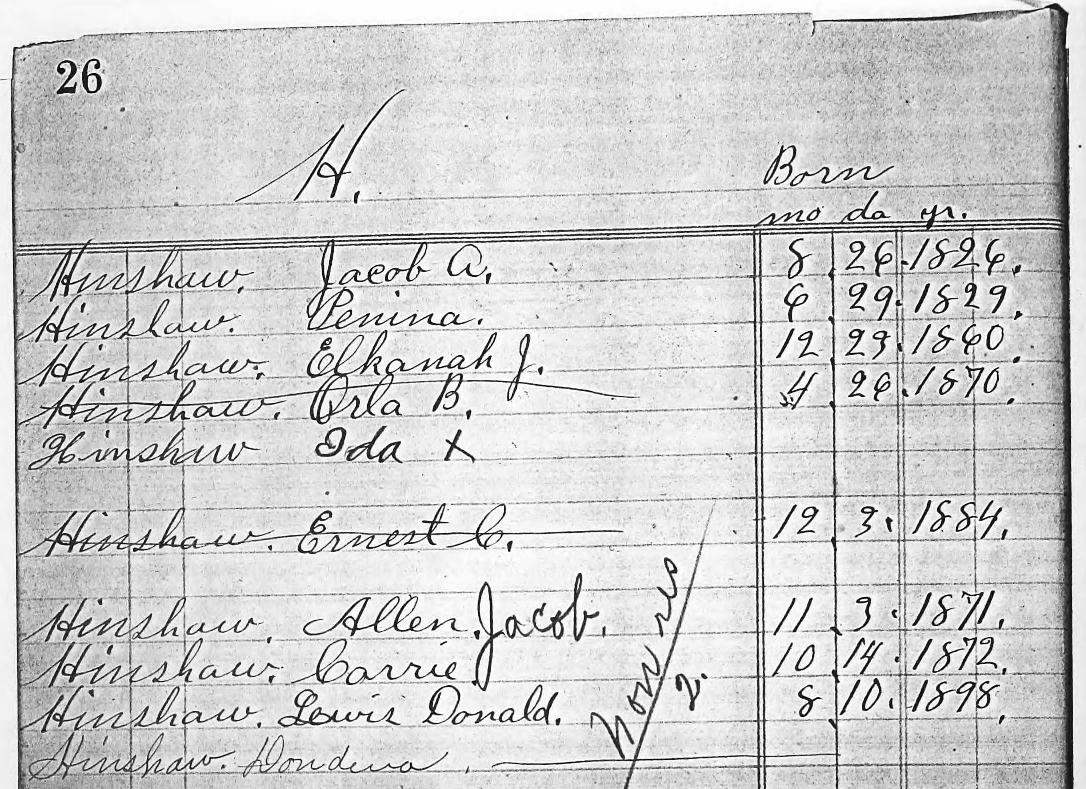 26
H.
Born
mo da yr.
Hinshaw. Jacob A. 8 26 1826.
Hinshaw. Penina. 6 29 1829.
Hinshaw. Elkanah J. 12 29 1860.
Hinshaw. Orla B. 4 26 1870.
Hinshaw Ida X
Hinshaw. Ernest C. 12 3 1884.
Hinshaw. Allen Jacob. 11 3 1871.
Hinshaw. Carrie. 10 14 1872.
Hinshaw. Lewis Donald. 8 10 1898.
Hinshaw.
Non res
2.